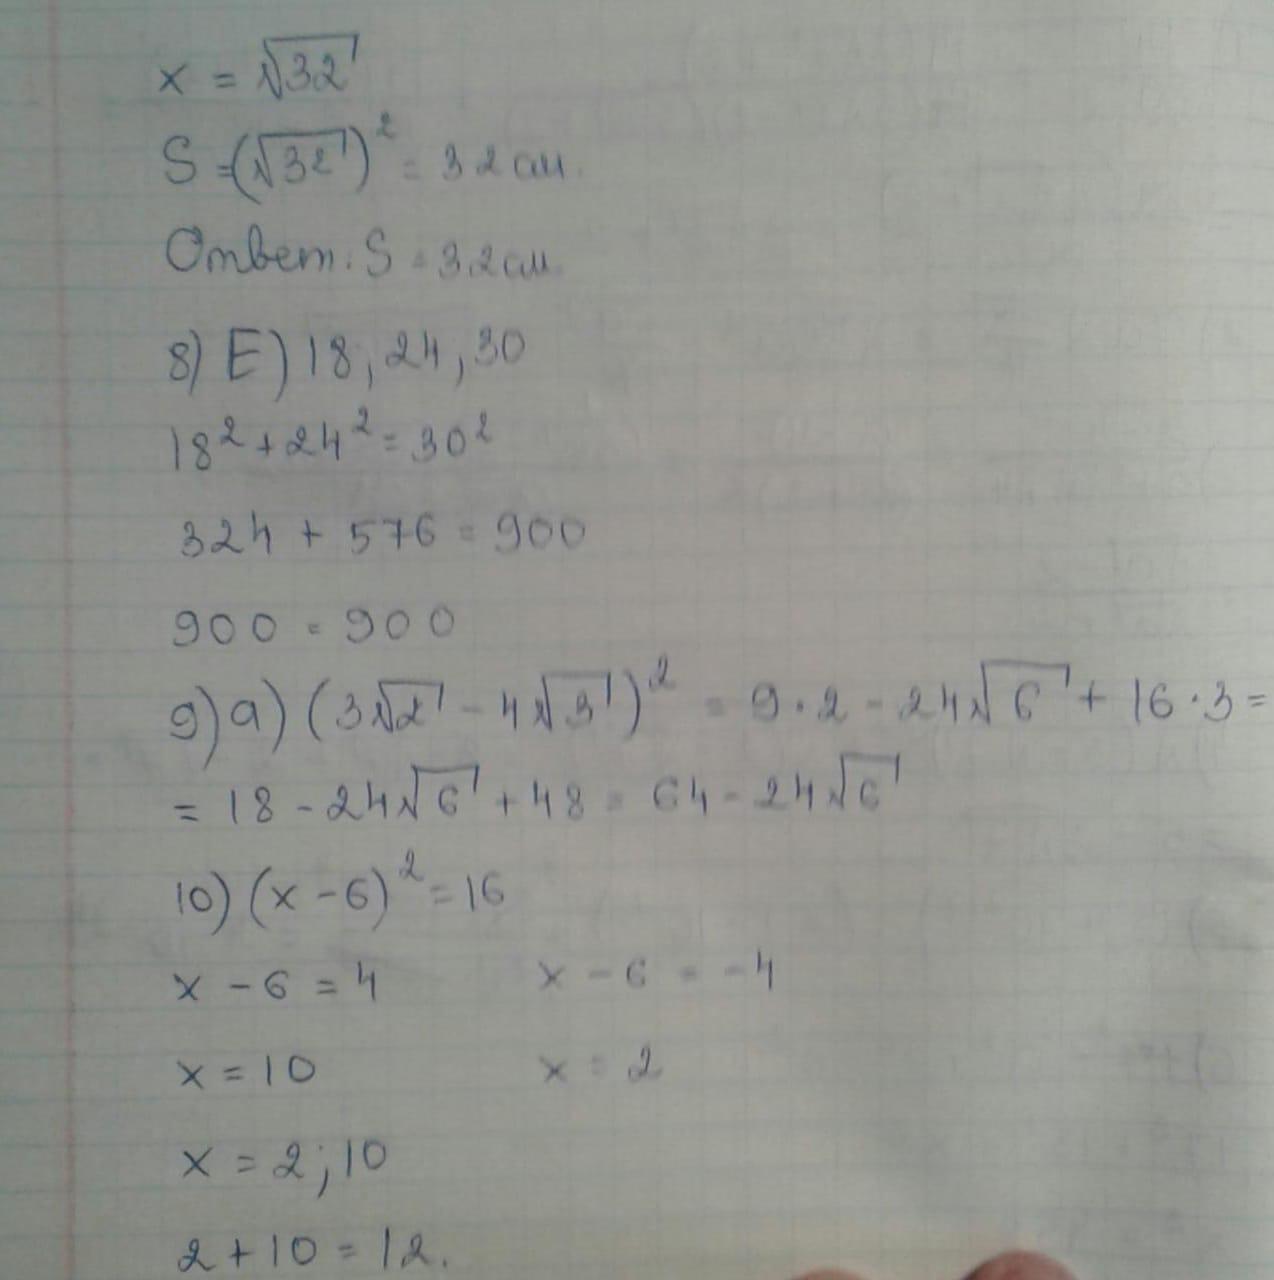 x = √32
S = (√32)² = 32 см.
Ответ: S = 32 см.
8) E) 18, 24, 30
18² + 24² = 30²
324 + 576 = 900
900 = 900
9) a) (3√2 - 4√3)² = 9·2 - 24√6 + 16·3 =
= 18 - 24√6 + 48 = 64 - 24√6
10) (x - 6)² = 16
x - 6 = 4 x - 6 = -4
x = 10 x = 2
x = 2; 10
2 + 10 = 12.